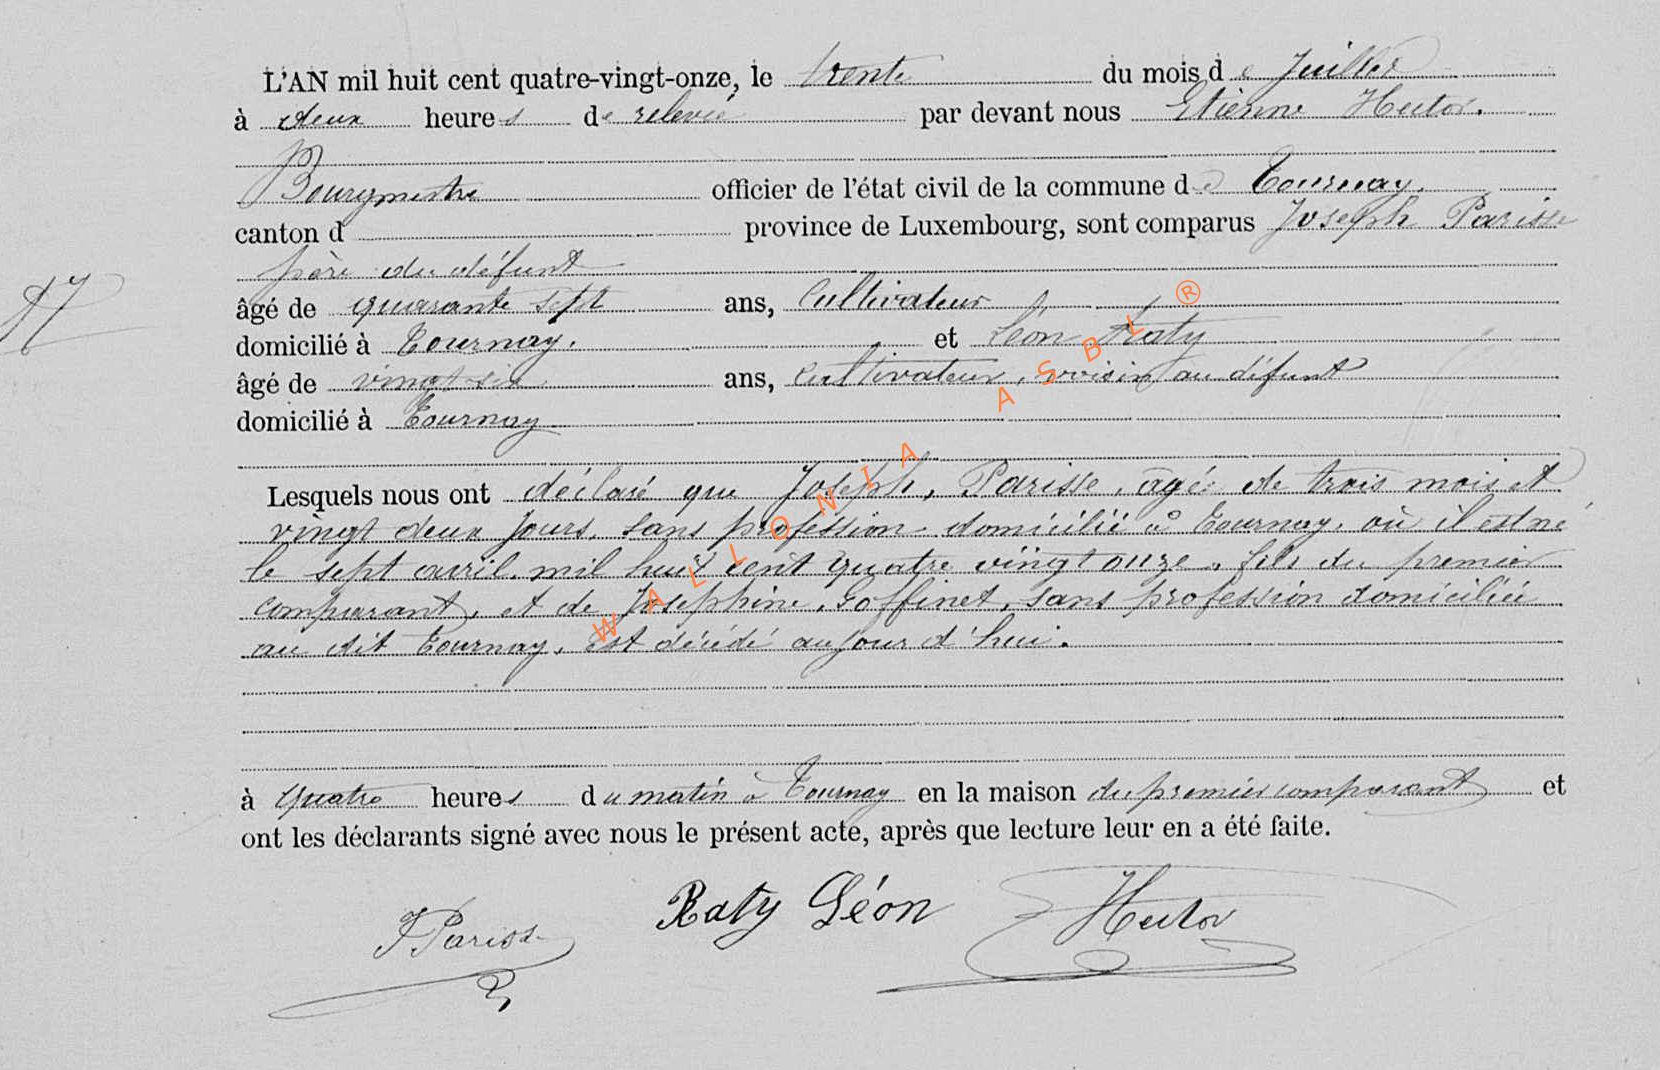 L'AN mil huit cent quatre-vingt-onze, le trente du mois de Juillet
à deux heures de relevée par devant nous Etienne Hector.
Bourgmestre officier de l'état civil de la commune de Tournay.
canton d province de Luxembourg, sont comparus Joseph Parisse
père du défunt
âgé de quarante sept ans, Cultivateur
domicilié à Tournay. et Léon Raty
âgé de vingt six ans, cultivateur, voisin au défunt
domicilié à Tournay
17
Lesquels nous ont déclaré que Joseph, Parisse, agé de trois mois et
vingt deux jours, sans profession domicilié à Tournay, où il est né
le sept avril, mil huit cent quatre vingt onze, fils du premier
comparant, et de Joséphine, Goffinet, sans profession domiciliée
au dit Tournay, est décédé aujourd'hui.
à quatre heures du matin à Tournay en la maison du premier comparant et
ont les déclarants signé avec nous le présent acte, après que lecture leur en a été faite.
J Parisse Raty Léon Hector
WALLONIA ASBL ®